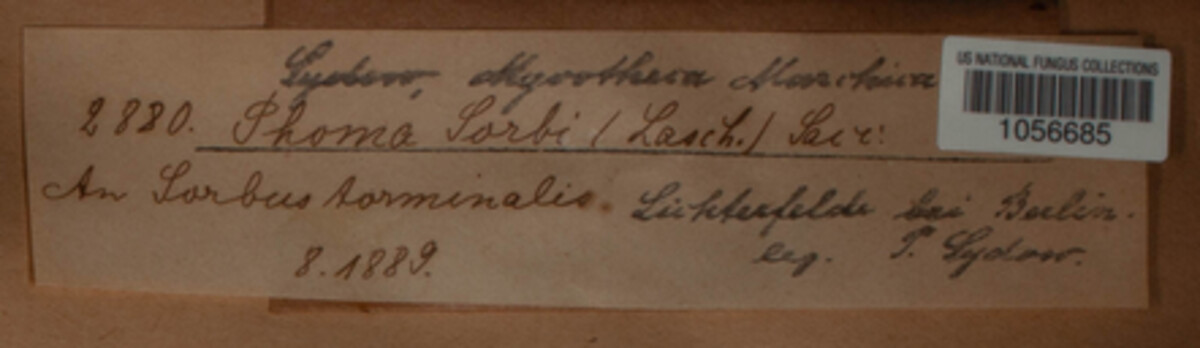 Sydow, Mycotheca Marchica
US NATIONAL FUNGUS COLLECTIONS
1056685
2880. Phoma Sorbi (Lasch.) Sacc:
An Sorbus torminalis. Lichterfelde bei Berlin.
8.1889. leg. P. Sydow.